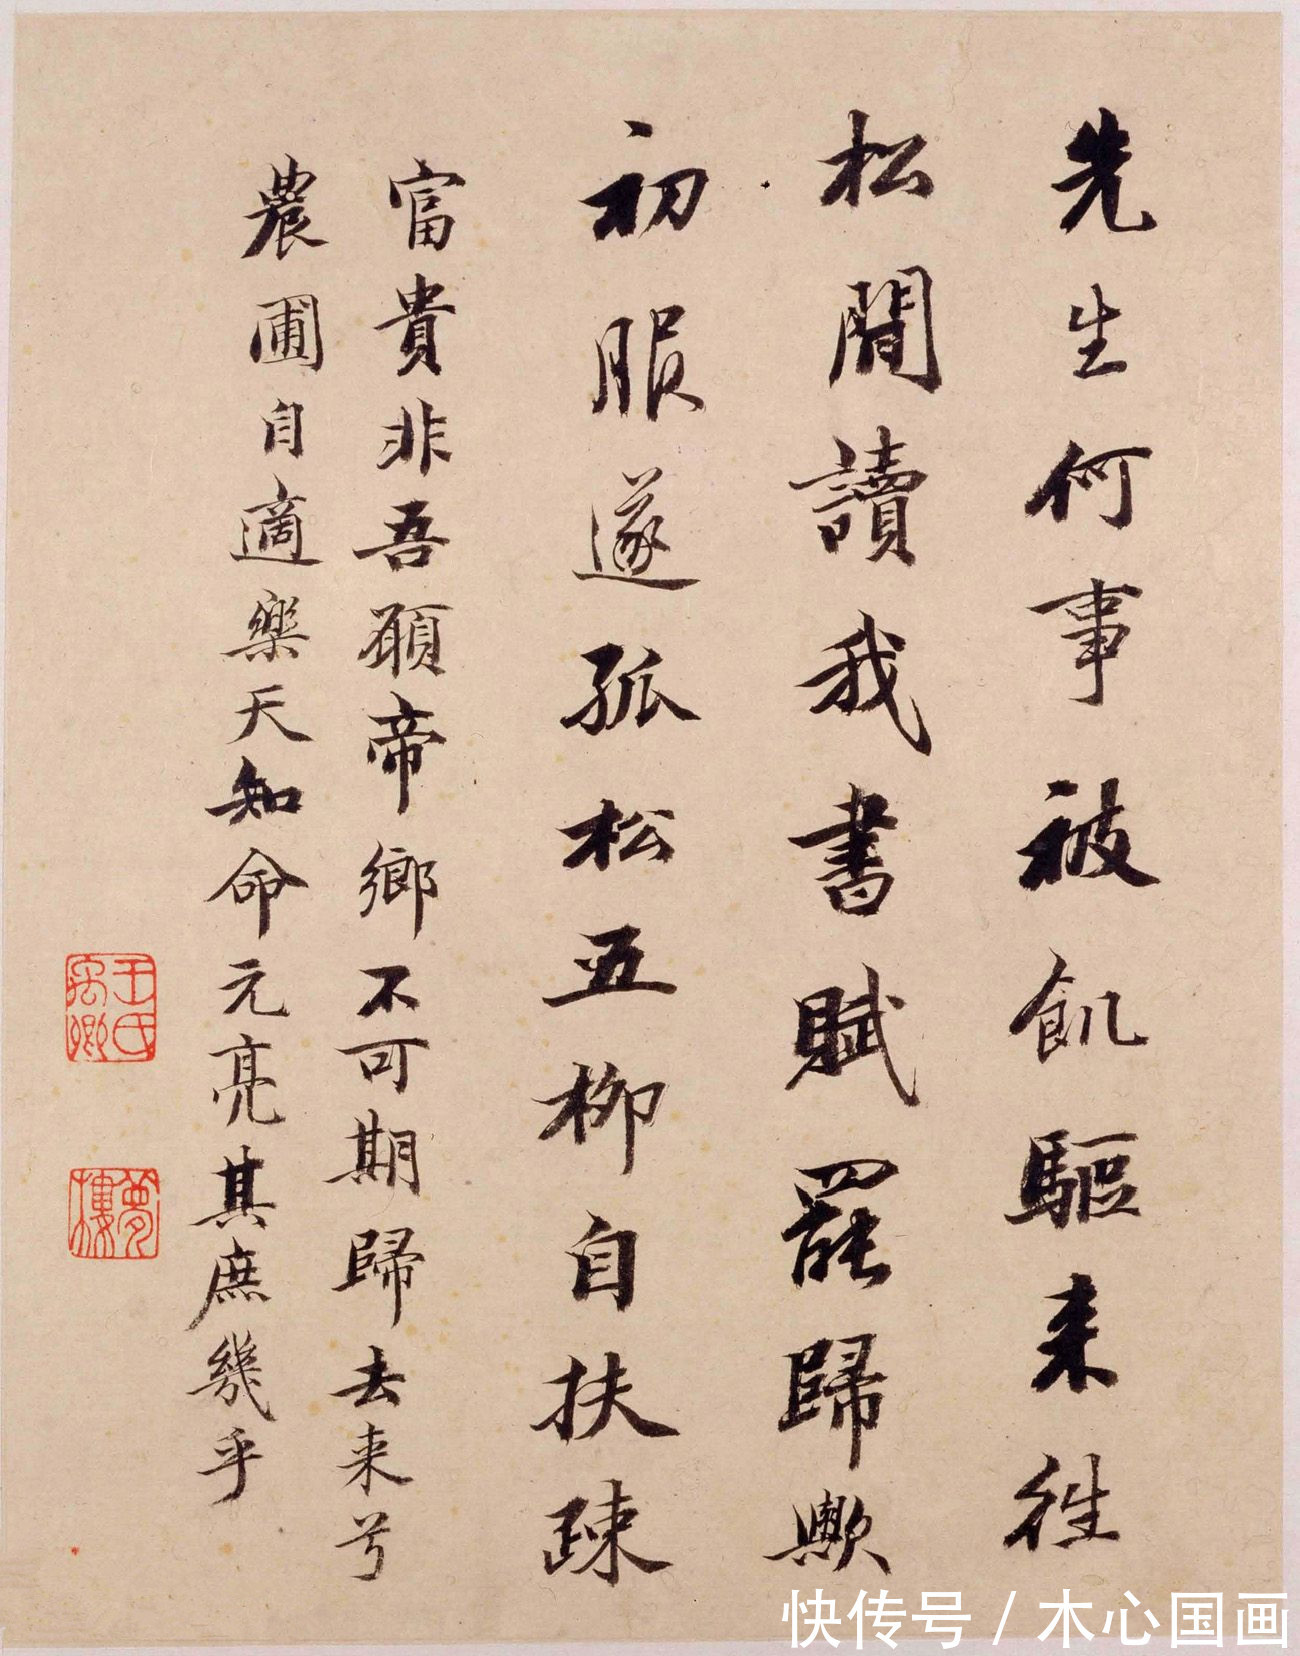 先生何事被飢驅来往
松間讀我書賦罷歸歟
初服遂孤松五柳自扶疎
富貴非吾願帝鄉不可期歸去来兮
農圃自適樂天知命元亮其庶幾乎
王氏禹卿
夢樓
快传号/木心国画